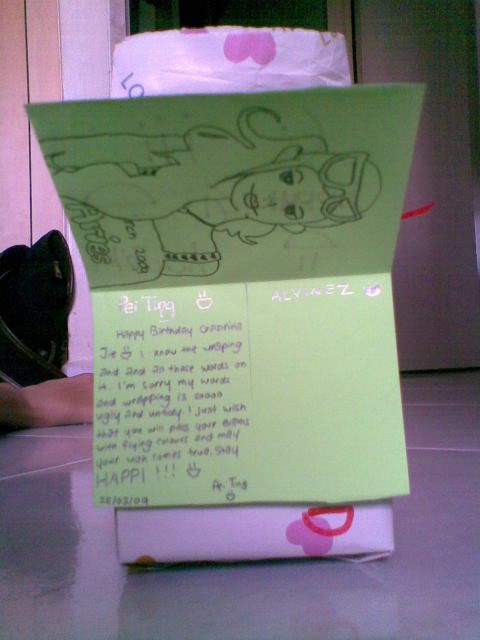 LO
Aries
Pei Ting
ALVINEZ
Happy Birthday
Jie I know the wrapping
and and
it. I'm sorry my words
and wrapping is soooo
ugly and untidy. I just wish
that you will pass your exams
with flying colours and may
your wish comes true. Stay
HAPPI !!!
Pei Ting
25/03/09